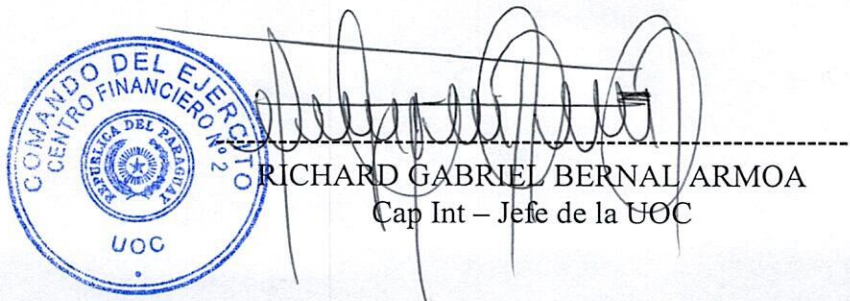 COMANDO DEL EJERCITO
CENTRO FINANCIERO Nº 2
REPUBLICA DEL PARAGUAY
UOC
RICHARD GABRIEL BERNAL ARMOA
Cap Int – Jefe de la UOC